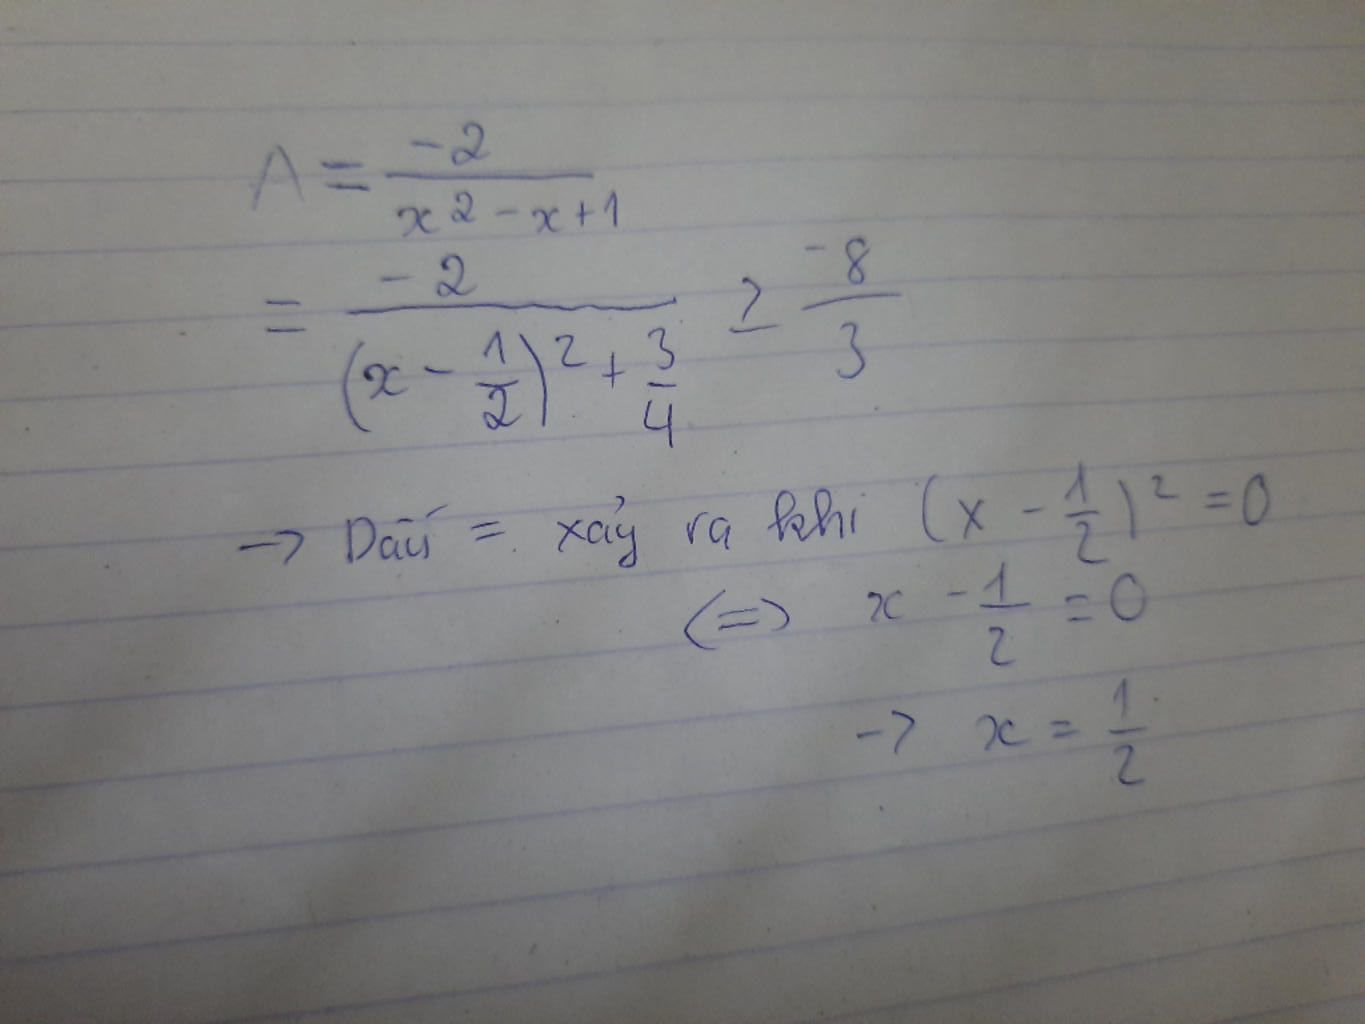 A = -2 / (x² - x + 1)
= -2 / ((x - 1/2)² + 3/4) ≥ -8/3
→ Dấu = xảy ra khi (x - 1/2)² = 0
(=) x - 1/2 = 0
→ x = 1/2